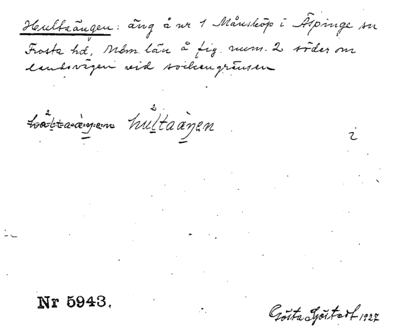 Hultaängen: äng å nr 1 Månsköp i Äspinge sn
Frosta hd, Mlm län å fig. num. 2 söder om
landsvägen vid sockengränsen
hultaäŋen
2
Nr 5943.
Gösta Sjöstedt 1927